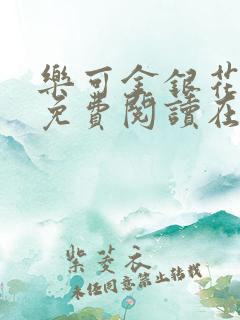 樂可金銀花
免費閱讀在
紫菱衣
未经同意禁止转载